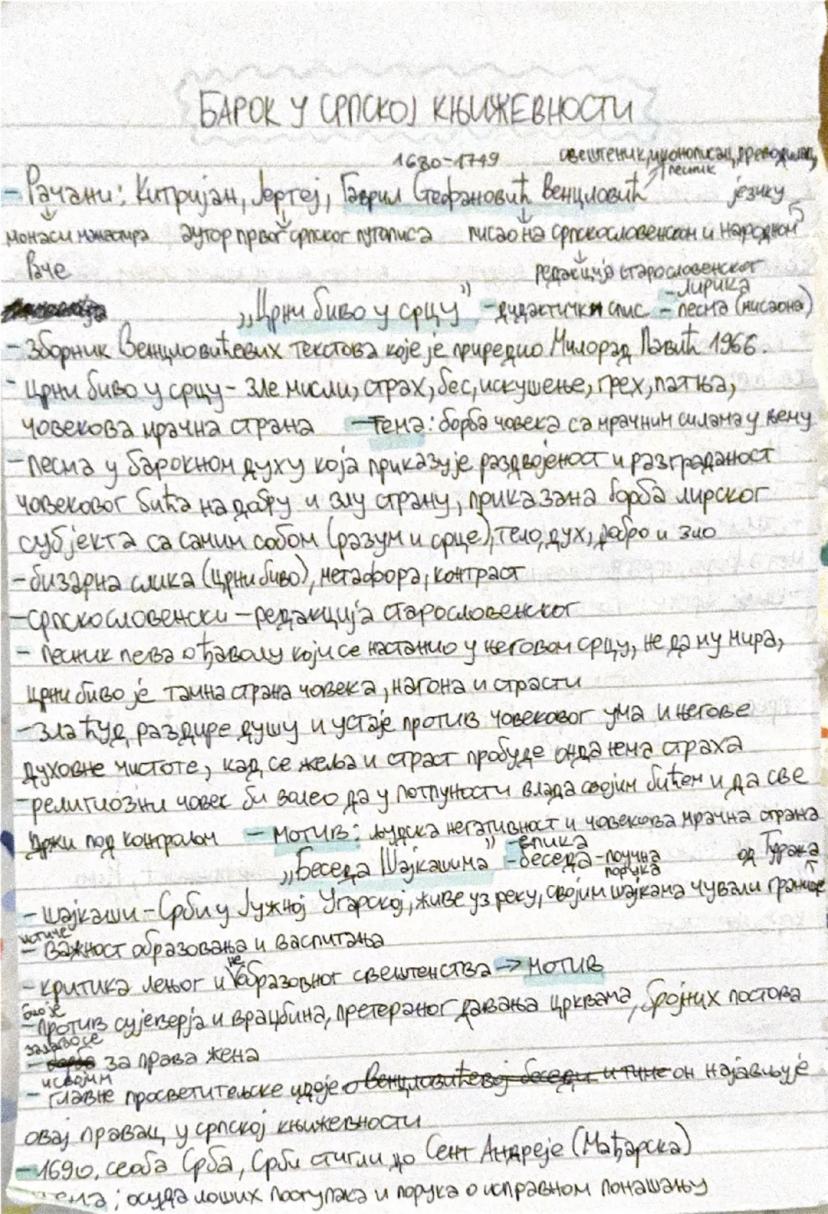 БАРОК У СРПСКОЈ КЊИЖЕВНОСТИ
1680-1749 свештеник, иконописац, преводилац,
песник
- Рачани: Китријан, Јертеј, Гаврил Стефановић Венцловић језику
монаси манастира аутор првог српског путописа писао на српскословенском и народном
Раче редакција старословенског
„Црни биво у срцу” - дидактички спис - лирика
- песма (писаона)
- Зборник Венцловићевих текстова које је приредио Милорад Павић 1966.
- Црни биво у срцу - зле мисли, страх, бес, искушење, грех, патња,
човекова мрачна страна - тема: борба човека са мрачним силама у њему
- песма у барокном духу која приказује раздвојеност и разграданост
човековог бића на добру и злу страну, приказана борба лирског
субјекта са самим собом (разум и срце), тело, дух, добро и зло
- бизарна слика (црни биво), метафора, контраст
- српскословенски - редакција старословенског
- песник пева о ђаволу који се настанио у његовом срцу, не да му мира,
црни биво је тамна страна човека, нагона и страсти
- зла ћуд раздире душу и устаје против човековог ума и његове
духовне чистоте, кад се жеља и страст пробуде онда нема страха
- религиозни човек би волео да у потпуности влада својим бићем и да све
држи под контролом - мотив: људска негативност и човекова мрачна страна
„Беседа Шајкашима” - епика
- беседа - поучна порука од Турака
- шајкаши - Срби у Јужној Угарској, живе уз реку, својим шајкама чували границе
истиче
- важност образовања и васпитања
- критика лењог и необразовног свештенства → мотив
био је
- против сујеверја и врацбина, претераног давања црквама, бројних постова
залагао се
- за права жена
и својим
- главне просветитељске идеје о Венцловићевој беседи и тиме он најављује
овај правац у српској књижевности
- 1690. сеоба Срба, Срби стигли до Сент Андреје (Мађарска)
тема: осуда лоших поступака и порука о исправном понашању